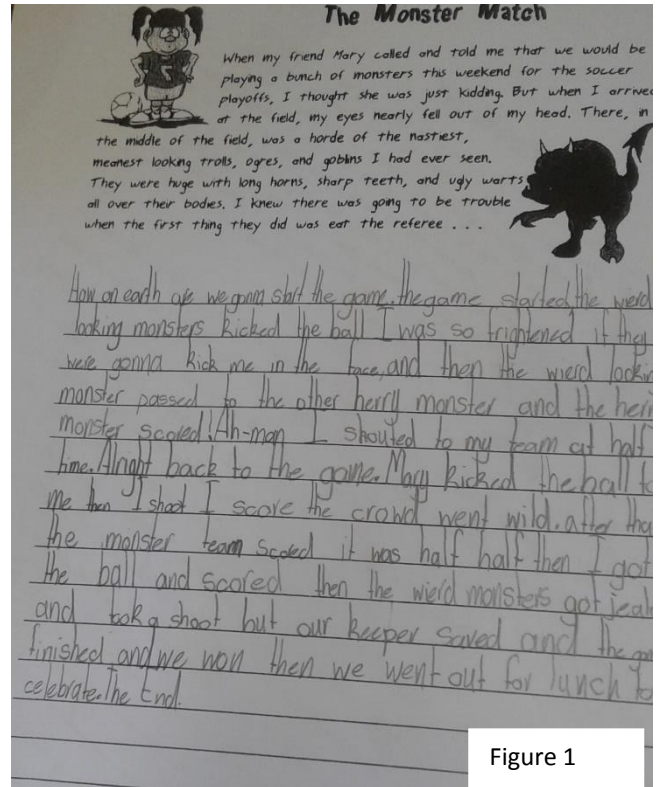 The Monster Match
When my friend Mary called and told me that we would be
playing a bunch of monsters this weekend for the soccer
playoffs, I thought she was just kidding. But when I arrived
at the field, my eyes nearly fell out of my head. There, in
the middle of the field, was a horde of the nastiest,
meanest looking trolls, ogres, and goblins I had ever seen.
They were huge with long horns, sharp teeth, and ugly warts
all over their bodies. I knew there was going to be trouble
when the first thing they did was eat the referee . . .
How on earth are we gonna start the game. the game started. the wierd
looking monsters kicked the ball I was so frightened if they
were gonna kick me in the face, and then the wierd
monster passed to the other herry monster and the
monster scored! Ah-man I shouted to my team at half
time. Alright back to the game. Mary kicked the ball
me then I shoot I score the crowd went wild. after
the monster team scored it was half half then I got
the ball and scored then the wierd monsters got
and took a shoot but our keeper saved and the
finished and we won then we went out for lunch to
celebrate. The End.
Figure 1